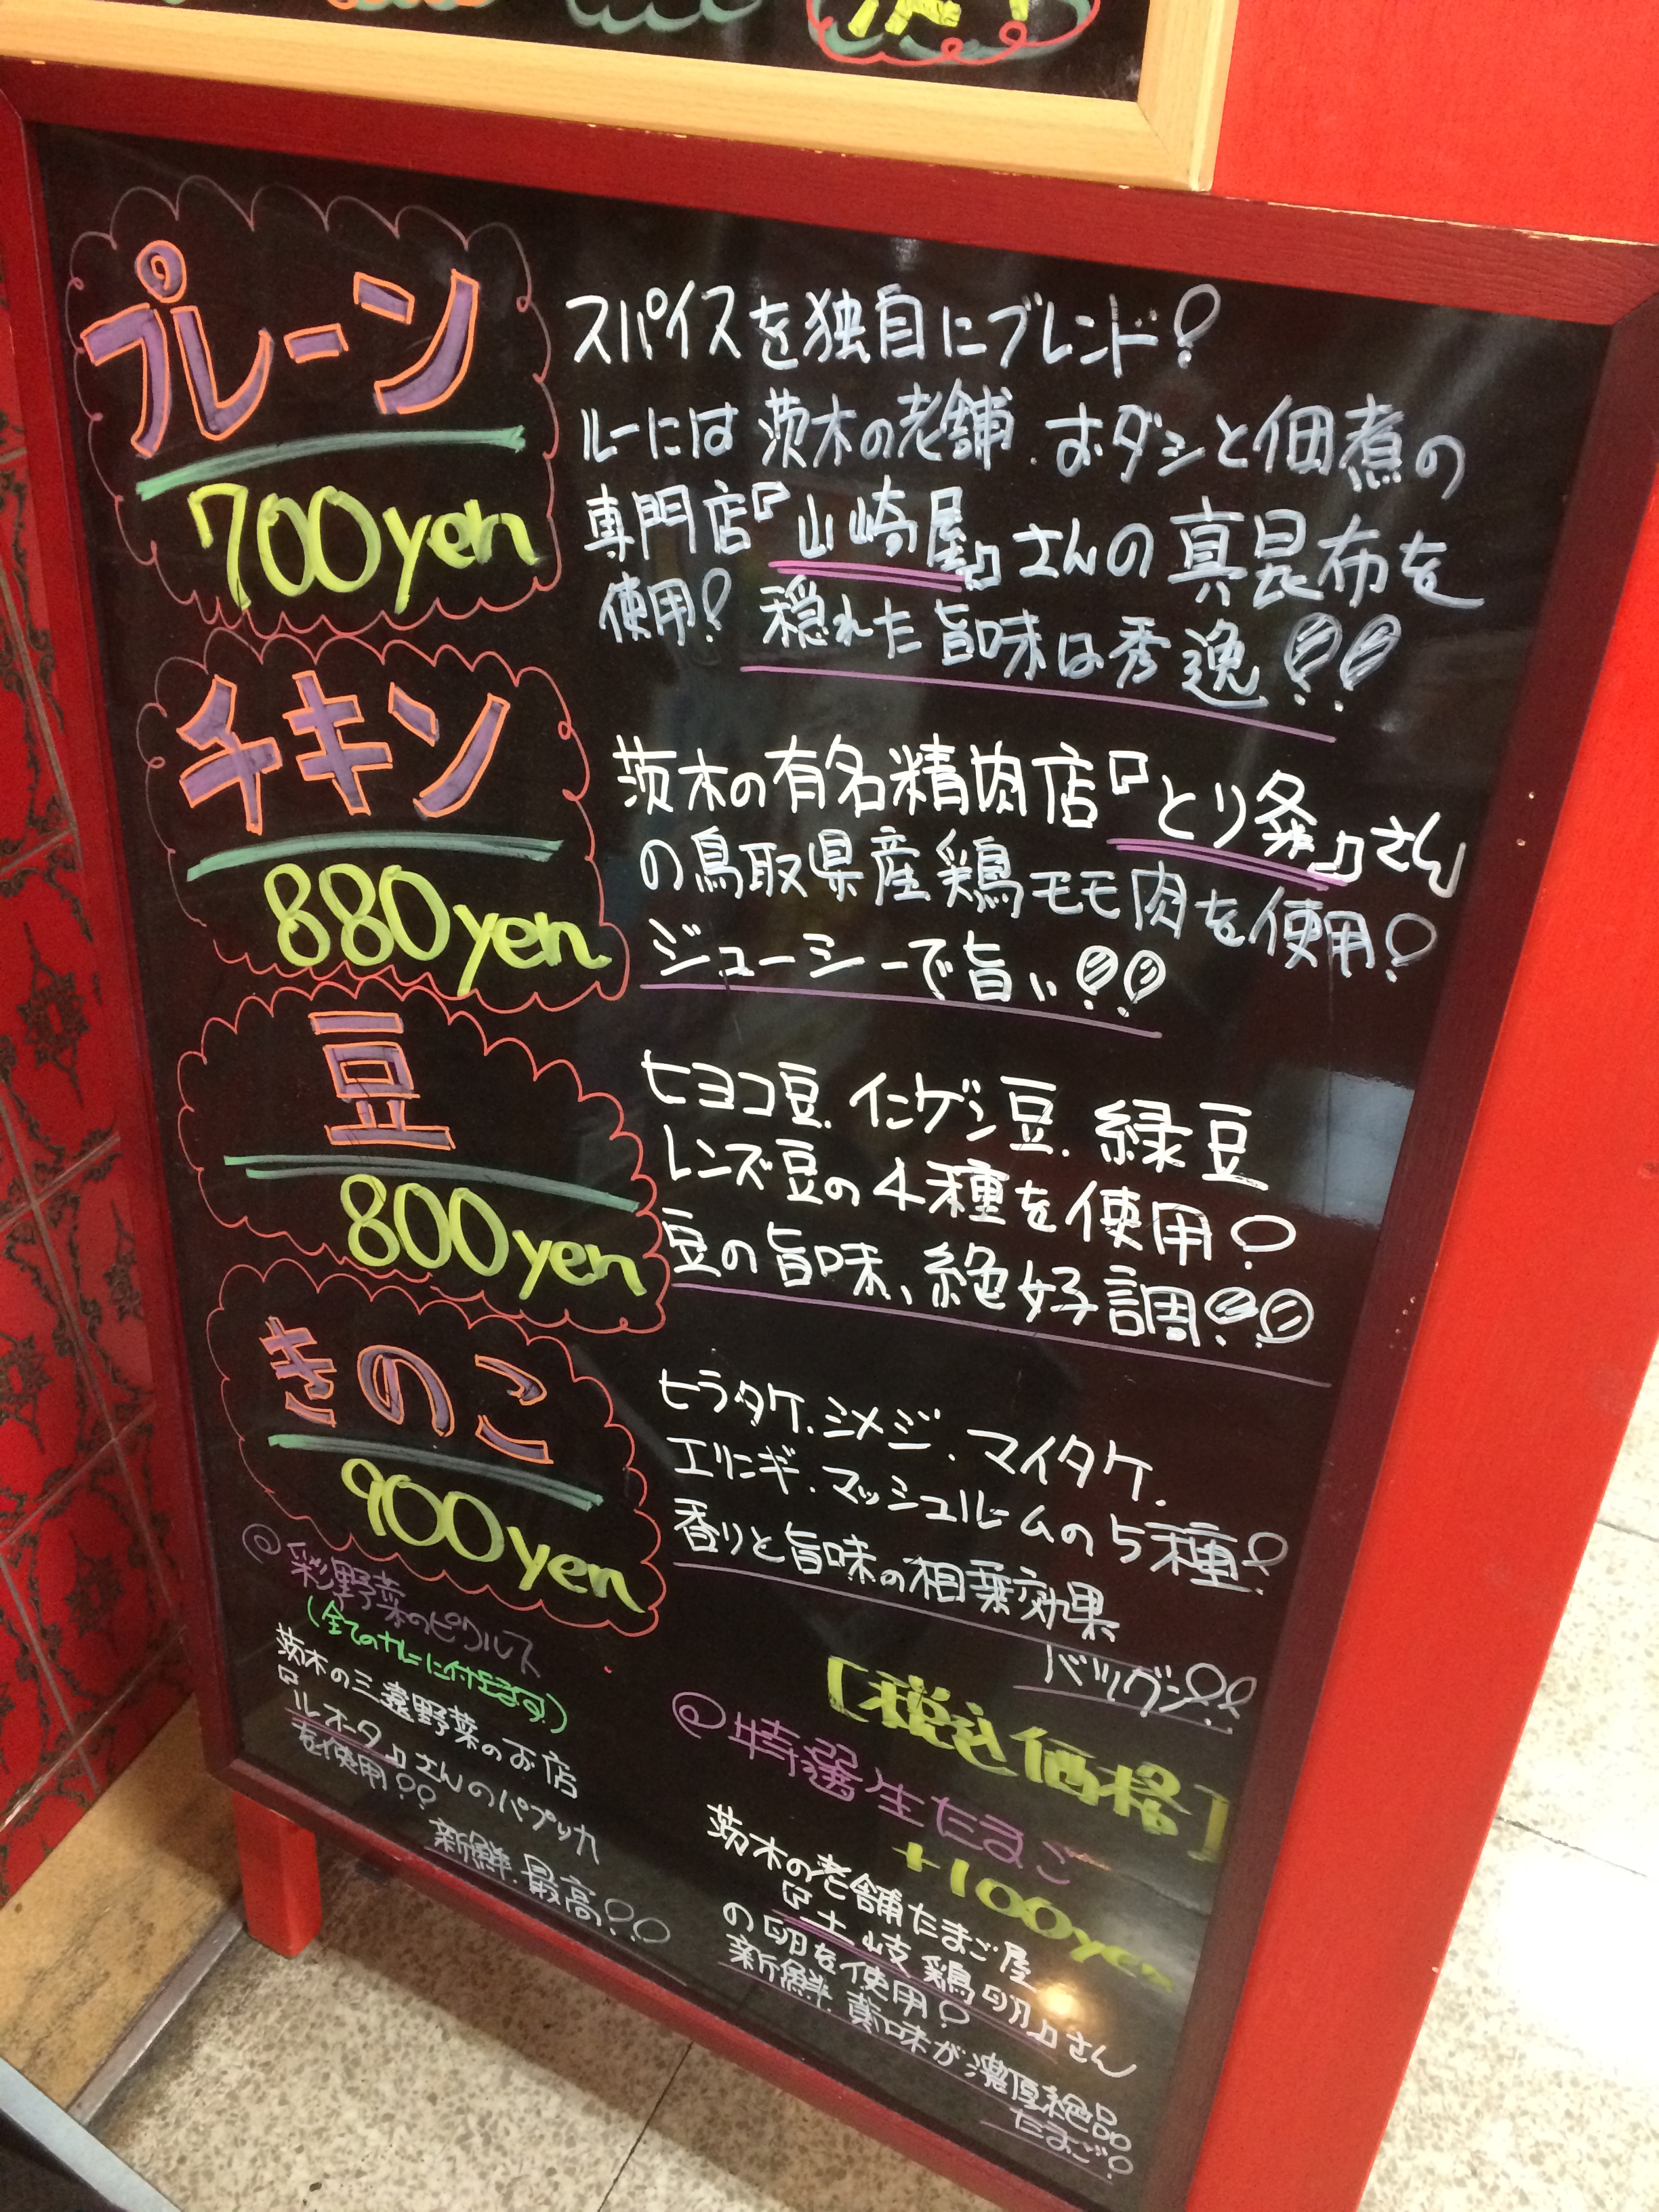 プレーン
700yen
スパイスを独自にブレンド!
ルーには茨木の老舗.おダシと佃煮の
専門店『山崎屋』さんの真昆布を
使用! 穏れた旨味は秀逸!!
チキン
880yen
茨木の有名精肉店『とり粂』さん
の鳥取県産鶏モモ肉を使用!
ジューシーで旨い!!
豆
800yen
ヒヨコ豆.インゲン豆.緑豆
レンズ豆の4種を使用!
豆の旨味、絶好調!!
きのこ
900yen
ヒラタケ.シメジ.マイタケ.
エリンギ.マッシュルームの5種!
香りと旨味の相乗効果
バツグン!!
@彩野菜のピクルス
(全てのカレーに付きます)
茨木の三島野菜のお店
『ルオータ』さんのパプリカ
を使用!!
新鮮.最高!!
[税込価格]
@特選生たまご
+100yen
茨木の老舗たまご屋
『土岐鶏卵』さん
の卵を使用!
新鮮.黄味が濃厚絶品
たまご!